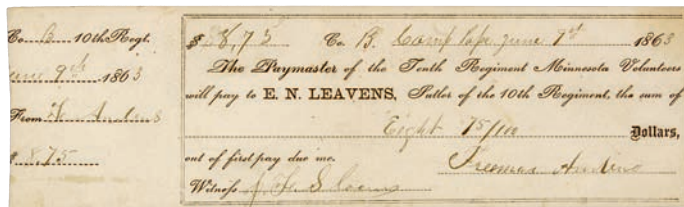 Co. B 10th Regt.
June 9th 1863
From
$ 8.75
$ 8,75 Co. B. Camp Pope June 9th 1863
The Paymaster of the Tenth Regiment Minnesota Volunteers
will pay to E. N. LEAVENS, Sutler of the 10th Regiment, the sum of
Eight 75/100 Dollars,
out of first pay due me.
Witness